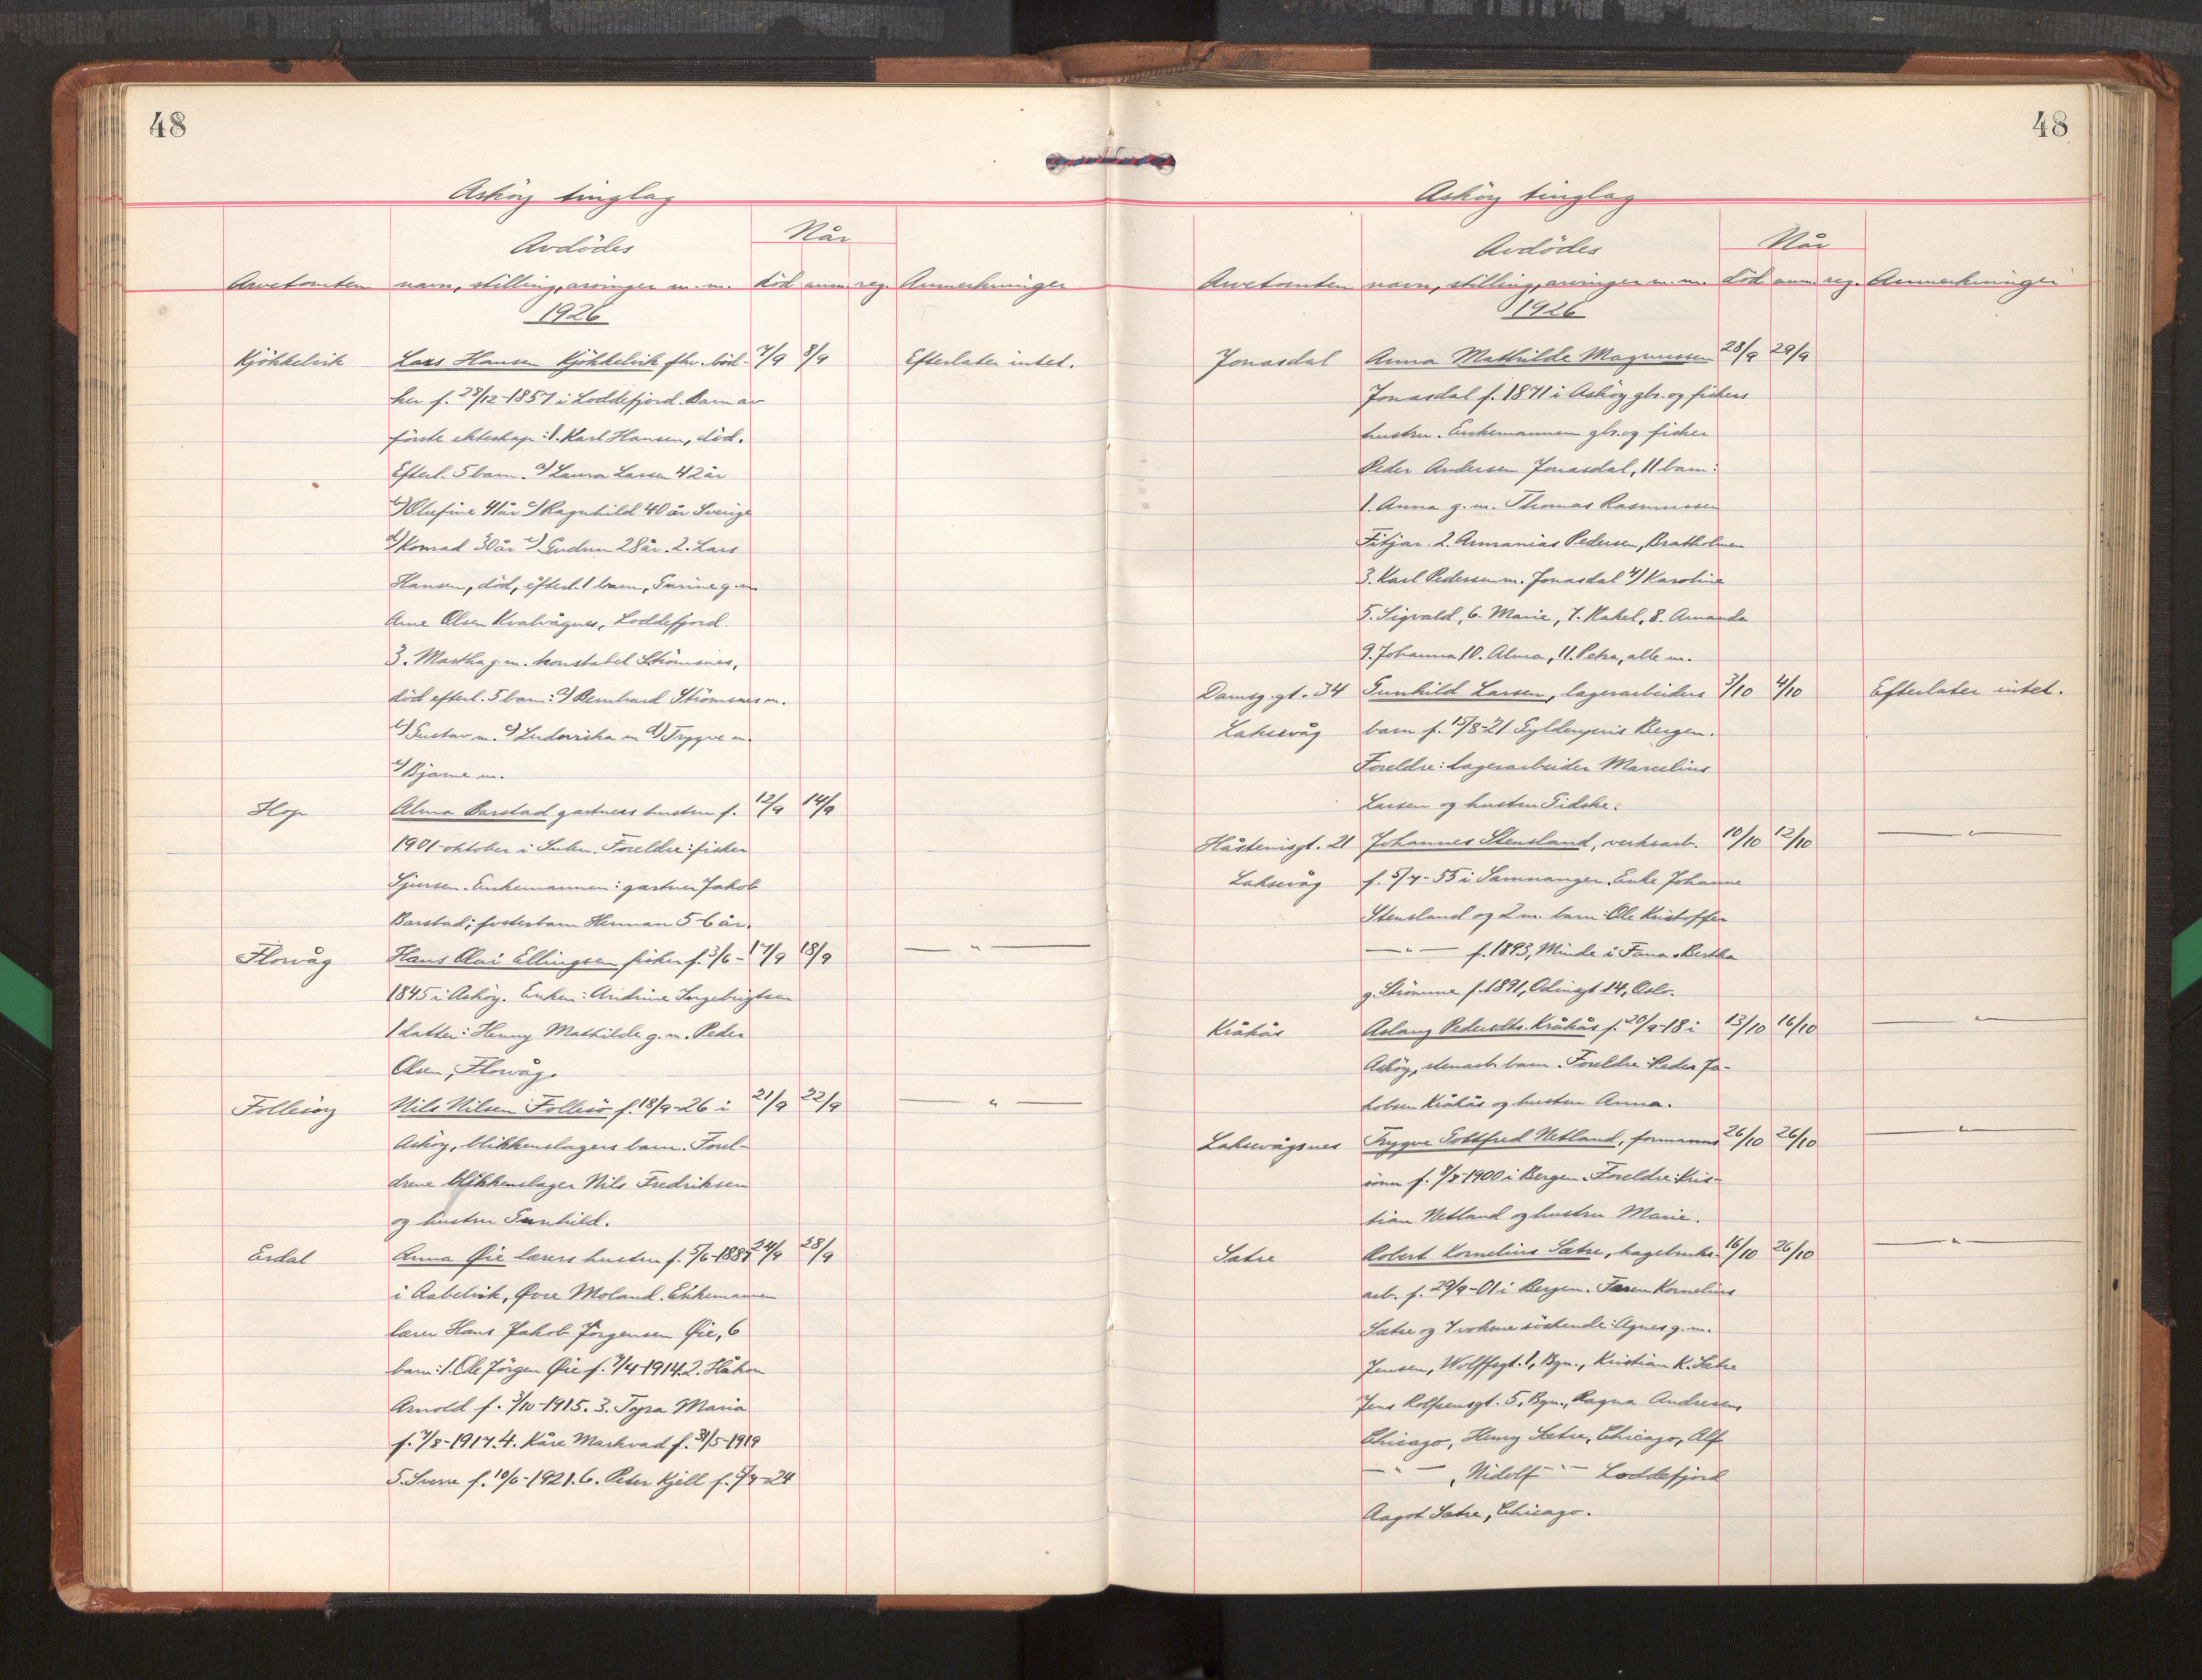 48
Asköy tinglag
Når
Avdödes
Arvetomten navn, stilling, arvinger m.m. död anm. reg. Anmerkninger
1926
Kjökkelvik Lars Hansen Kjökkelvik fhv. böd- 7/9 8/9 Efterlater intet.
ker f. 28/12-1857 i Loddefjord. Barn av
förste ekteskap: 1. Karl Hansen, död.
Efterl. 5 barn. a) Laura Larsen 42 år
b) Olufine 41 år c) Ragnhild 40 år Sverige
d) Konrad 30 år e) Gudrun 28 år. 2. Lars
Hansen, död, efterl. 1 barn, g.m
Arne Olsen Kvalvågnes, Loddefjord.
3. Martha g.m. konstabel Strömsnes,
död efterl. 5 barn: a) Bernhard Strömsnes m.
b) Gustav m. c) Ludovika m d) Trygve m.
e) Bjarne m.
Hop Alma Barstad gartners hustru f. 12/9 14/9
1901-oktober i Foreldre: fisker
Sjursen. Enkemannen: gartner Jakob
Barstad; fosterbarn Herman 5-6 år.
Florvåg Hans Olai Ellingsen fisker f. 3/6- 17/9 18/9 — " —
1845 i Asköy. Enken: Andrine Ingebrigtsen
1 datter: Henny Mathilde g.m. Peder
Olsen, Florvåg.
Follesöy Nils Nilsen Follesö f. 18/9-26 i 21/9 22/9 — " —
Asköy, blikkenslagers barn. Forel-
drene blikkenslager Nils Fredriksen
og hustru Gunhild.
Erdal Anna Øie lærers hustru f. 5/6-1887 24/9 28/9
i Aabelvik, Øvre Moland. Enkemannen
lærer Hans Jakob Jörgensen Øie, 6
barn: 1. Ole Jörgen Øie f. 7/4-1914. 2. Håkon
Arnold f. 3/10-1915. 3. Tyra Maria
f. 7/8-1917. 4. Kåre Markvad f. 31/5-1919
5. Sverre f. 10/6-1921. 6. Peter Kjell f. 5/7-24
48
Asköy tinglag
Når
Avdödes
Arvetomten navn, stilling, arvinger m.m. död anm. reg. Anmerkninger
1926
Jonasdal Anna Mathilde Magnussen 28/9 29/9
Jonasdal f. 1871 i Asköy gbr. og fiskers
hustru. Enkemannen gbr. og fisker
Peder Andersen Jonasdal, 11 barn:
1. Anna g.m. Thomas Rasmussen
Fitjar. 2. Annanias Pedersen, Bratholmen
3. Karl Pedersen m. Jonasdal 4) Karoline
5. Sigvald, 6. Marie, 7. Rakel, 8. Amanda
9. Johanna 10. Alma, 11. Petra, alle m.
Damsg.gt. 34 Gunhild Larsen, lagerarbeiders 3/10 4/10 Efterlater intet.
Laksevåg barn f. 15/8-21 Bergen.
Foreldre: lagerarbeider Marcelius
Larsen og hustru Gidske.
Håsteinsgt. 21 Johannes Stensland, verksarb. 10/10 12/10 — " —
Laksevåg f. 5/7-55 i Samnanger. Enke Johanne
Stensland og 2 m. barn: Ole Kristoffer
— " — f. 1893, Minde i Fana. Bertha
g. Strömme f. 1891, Odinsgt. 14, Oslo.
Kråkås Aslaug Pedersdtr. Kråkås f. 20/9-18 i 13/10 16/10 — " —
Asköy, stenarb. barn. Foreldre: Peder Ja-
kobsen Kråkås og hustru Anna.
Laksevågsnes Trygve Gottfred Netland, formanns 26/10 26/10 — " —
sönn f. 8/8-1900 i Bergen. Foreldre: Kris-
tian Netland og hustru Marie.
Sætre Robert Kornelius Sætre, hagebruks- 16/10 26/10 — " —
arb. f. 29/9-01 i Bergen. Faren Kornelius
Sætre og 7 voksne söskende: Agnes g.m.
Jensen, Wolffsgt. 1, Bgn., Kristian K. Sætre
Jens Rolfsensgt. 5, Bgn., Ragna Andresen,
Chicago, Henry Sætre, Chicago, Alf
— " —, Nidolf — " — Loddefjord
Aagot Sætre, Chicago.